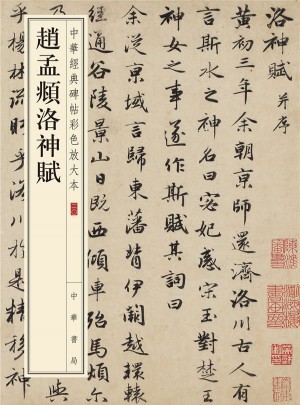 洛神賦 并序
黃初三年余朝京師還濟洛川古人有
言斯水之神名曰宓妃感宋玉對楚王
神女之事遂作斯賦其詞曰
余從京域言歸東藩背伊闕越轘轅
經通谷陵景山日既西傾車殆馬煩尓
與
乎楊林流眄乎洛川於是精移神
中華經典碑帖彩色放大本
趙孟頫洛神賦
中華書局